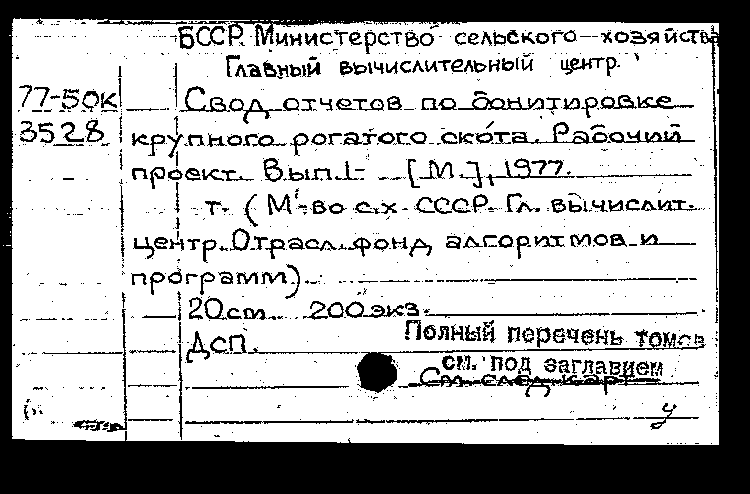 БССР. Министерство сельского хозяйства
Главный вычислительный центр.
77-50к Свод отчетов по бонитировке
3528 крупного рогатого скота. Рабочий
проект. Вып.1- [М.], 1977.
т. (М-во с.х. СССР. Гл. вычислит.
центр. Отрасл. фонд алгоритмов и
программ).
20см. 200 экз.
ДСП. Полный перечень томов
см. под заглавием
См. след. карт